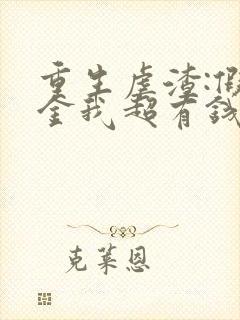 重生虐渣:假
金我超有钱
克莱恩